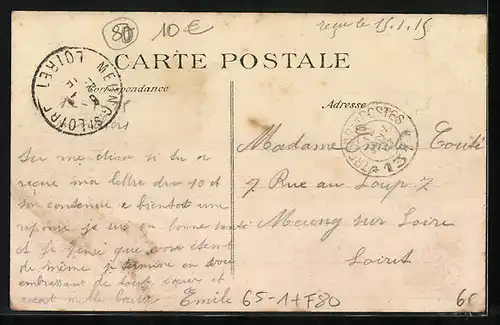 80 10€
reçu le 15.1.15
CARTE POSTALE
Correspondance
Adresse
MEUNG-S-LOIRE LOIRET
TRESOR ET POSTES 131
Tu me diras si tu a
reçue ma lettre du 10 et
son contenue a bientot une
reponse je suis en bonne santé
et je pense que vous étent
de même je termine en vous
embrassant de tout cœur et
Emile
Madame Emile
7 Rue au Loup 7
Meung sur Loire
Loiret
65-1+F80